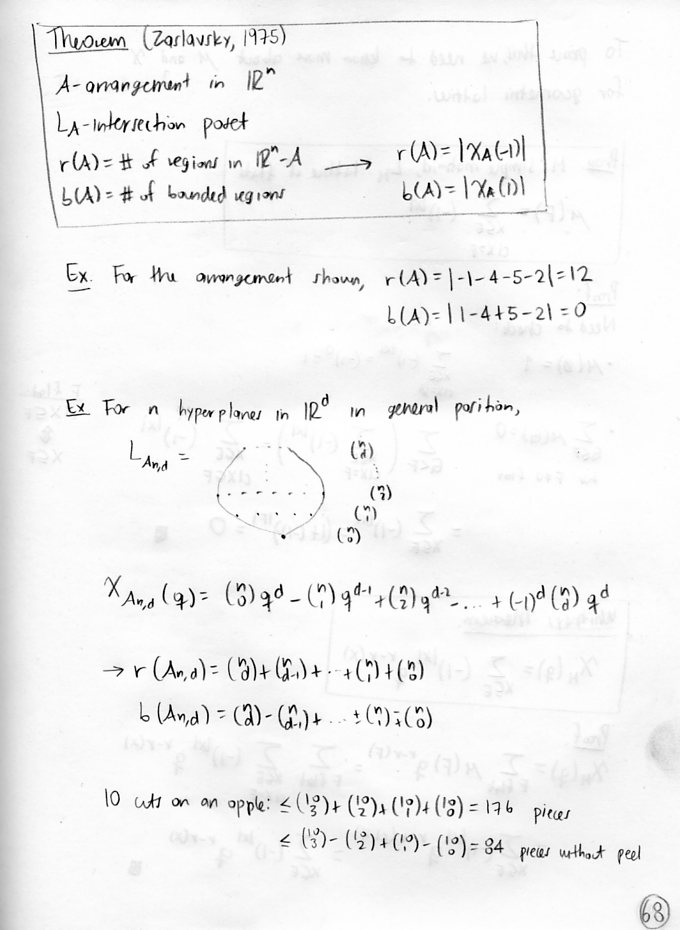 Theorem (Zaslavsky, 1975)
A-arrangement in ℝⁿ
L_A-intersection poset
r(A) = # of regions in ℝⁿ-A → r(A) = |χ_A(-1)|
b(A) = # of bounded regions b(A) = |χ_A(1)|
Ex. For the arrangement shown, r(A) = |-1-4-5-2| = 12
b(A) = |1-4+5-2| = 0
Ex For n hyperplanes in ℝ^d in general position,
L_{A_{n,d}} = (n d)
⋮
(n 2)
(n 1)
(n 0)
χ_{A_{n,d}}(q) = (n 0) q^d - (n 1) q^{d-1} + (n 2) q^{d-2} - ... + (-1)^d (n d) q^d
→ r(A_{n,d}) = (n d) + (n d-1) + ... + (n 1) + (n 0)
b(A_{n,d}) = (n d) - (n d-1) + ... ± (n 1) ∓ (n 0)
10 cuts on an apple: ≤ (10 3) + (10 2) + (10 1) + (10 0) = 176 pieces
≤ (10 3) - (10 2) + (10 1) - (10 0) = 84 pieces without peel
68